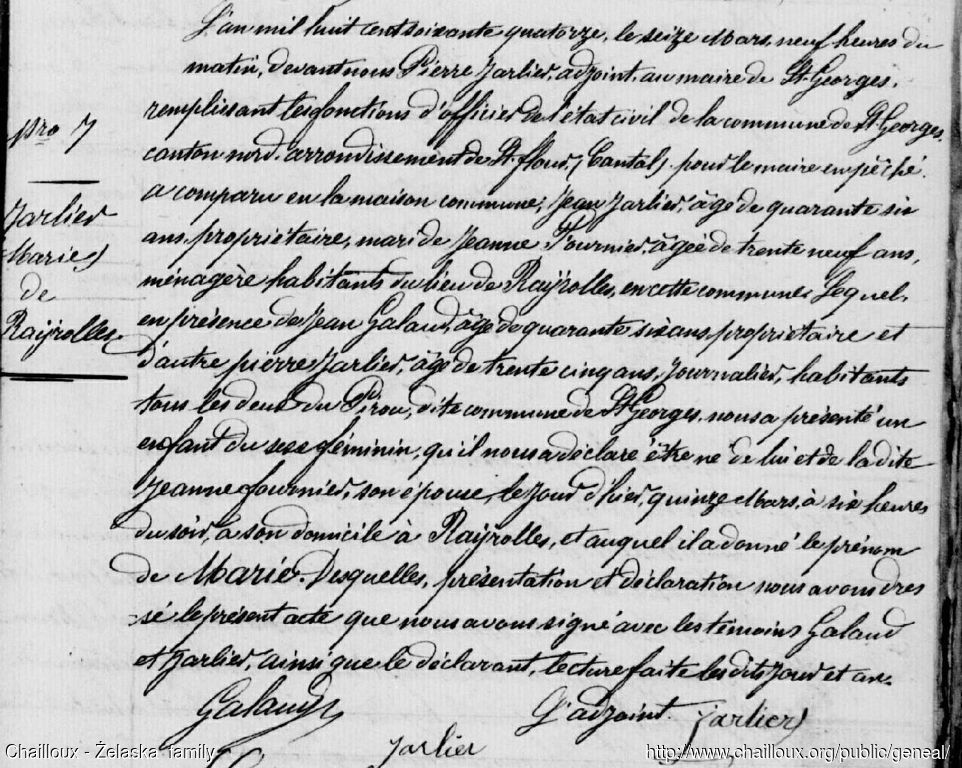 L'an mil huit cent soixante quatorze, le seize Mars, neuf heures du
matin, devant nous Pierre Jarlier, adjoint au maire de St. Georges,
remplissant les fonctions d'officier de l'état civil de la commune de St. Georges,
canton nord arrondissement de St. flour, (Cantal) pour le maire empêché.
a comparu en la maison commune, Jean Jarlier, âgé de quarante six
ans, propriétaire, mari de Jeanne Fournier, âgée de trente neuf ans,
ménagère habitants du lieu de Raÿrolles, en cette commune. Lequel,
en présence de Jean Galaud, âgé de quarante six ans, propriétaire et
d'autre pierre Jarlier, âgé de trente cinq ans, Journalier, habitants
tous les deux du Pirou, dite commune de St. Georges, nous a présenté un
enfant du sexe féminin, qu'il nous a déclaré être né de lui et de la dite
Jeanne fournier, son épouse, le jour d'hier, quinze Mars, à six heures
du soir, a son domicile à Raÿrolles, et auquel il a donné le prénom
de Marie. Desquelles, présentation et déclaration nous avons dres
-sé le présent acte que nous avons signé avec les témoins Galaud
et Jarlier, ainsi que le déclarant, lecture faite les dits jour et an.
Galaud
L'adjoint. Jarlier
Jarlier
nro 7
Jarlier
Marie
de
Raÿrolles.
Chailloux - Želaska family
http://www.chailloux.org/public/geneal/